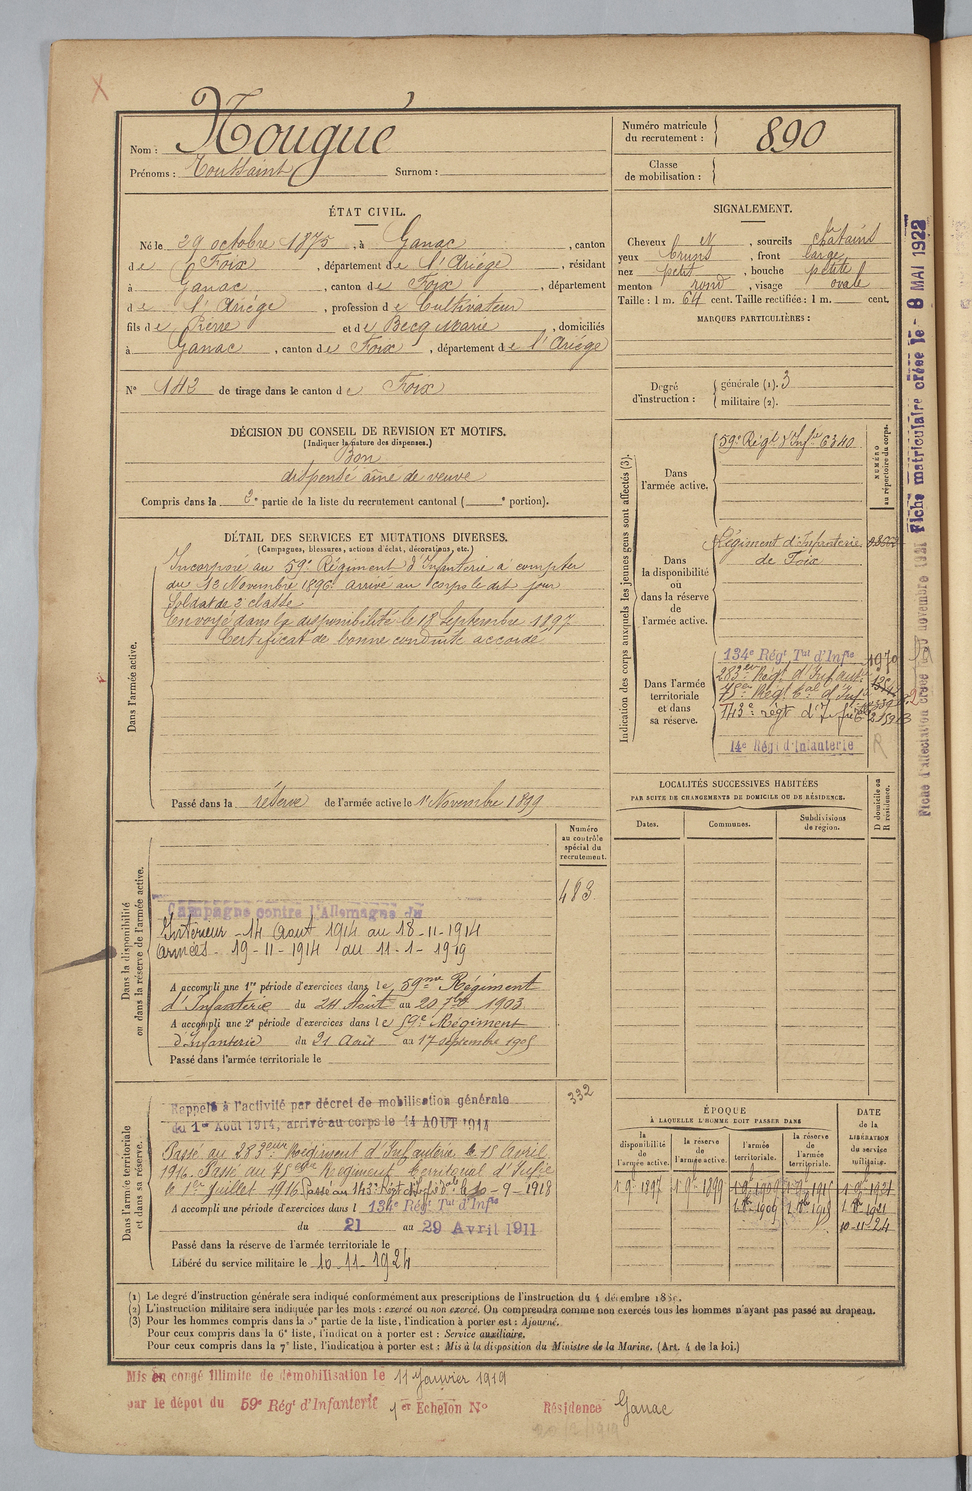 Nom : Nougué
Prénoms : Toussaint Surnom :
Numéro matricule
du recrutement : 890
Classe
de mobilisation :
ÉTAT CIVIL.
Né le 29 octobre 1875, à Ganac, canton
de Foix, département de l'Ariège, résidant
à Ganac, canton de Foix, département
de l'Ariège, profession de Cultivateur
fils de Pierre et de Becq Marie, domiciliés
à Ganac, canton de Foix, département de l'Ariège
N° 142 de tirage dans le canton de Foix
SIGNALEMENT.
Cheveux et, sourcils chatains
yeux bruns, front large
nez petit, bouche petite
menton rond, visage ovale
Taille : 1 m. 64 cent. Taille rectifiée : 1 m. cent.
MARQUES PARTICULIÈRES :
Degré
d'instruction :
générale (1). 3
militaire (2).
DÉCISION DU CONSEIL DE REVISION ET MOTIFS.
(Indiquer la nature des dispenses.)
Bon
dispensé aîné de veuve
Compris dans la 2e partie de la liste du recrutement cantonal ( e portion).
DÉTAIL DES SERVICES ET MUTATIONS DIVERSES.
(Campagnes, blessures, actions d'éclat, décorations, etc.)
Dans l'armée active.
Incorporé au 59e Régiment d'Infanterie à compter
du 13 Novembre 1896 arrivé au corps le dit jour
Soldat de 2e classe
Envoyé dans la disponibilité le 18 Septembre 1897
Certificat de bonne conduite accordé
Passé dans la réserve de l'armée active le 1er Novembre 1899
Indication des corps auxquels les jeunes gens sont affectés (3).
NUMÉRO
au répertoire du corps.
Dans
l'armée active.
59e Régt d'Infie 6340
Dans
la disponibilité
ou
dans la réserve
de
l'armée active.
Régiment d'Infanterie
de Foix
Dans l'armée
territoriale
et dans
sa réserve.
134e Régt Tal d'Infie 1970
283e Régt d'Infanterie
75e Régt Tal d'Infie
143e régt d'Infie
14e Régt d'Infanterie
R
LOCALITÉS SUCCESSIVES HABITÉES
PAR SUITE DE CHANGEMENTS DE DOMICILE OU DE RÉSIDENCE.
D domicile ou
R résidence.
Dates. Communes. Subdivisions
de région.
Numéro
au contrôle
spécial du
recrutement.
483
Dans la disponibilité
ou dans la réserve de l'armée active.
Campagne contre l'Allemagne du
Intérieur - 14 Aout 1914 au 18-11-1914
Armées - 19-11-1914 au 11-1-1919
A accompli une 1re période d'exercices dans le 59me Régiment
d'Infanterie du 24 Août au 20 7bre 1903
A accompli une 2e période d'exercices dans le 59e Régiment
d'Infanterie du 21 Août au 17 septembre 1905
Passé dans l'armée territoriale le
332
Dans l'armée territoriale
et dans sa réserve.
Rappelé à l'activité par décret de mobilisation générale
du 1er Août 1914, arrivé au corps le 14 AOUT 1914
Passé au 283eme Régiment d'Infanterie le 15 Avril
1916. Passé au 75eme Régiment territorial d'Infie
le 1er Juillet 1916 Passé au 143e Régt d'Infie le 10-9-1918
A accompli une période d'exercices dans l 134e Régt Tal d'Infie
du 21 au 29 Avril 1911
Passé dans la réserve de l'armée territoriale le
Libéré du service militaire le 10-11-1924
ÉPOQUE
À LAQUELLE L'HOMME DOIT PASSER DANS
DATE
de la
LIBÉRATION
du service
militaire.
la disponibilité de l'armée active. la réserve de l'armée active. l'armée territoriale. la réserve de l'armée territoriale.
1 9bre 1897 1 9bre 1899 1 9bre 1909 1 9bre 1915 1 9bre 1921
1 8bre 1909 1 8bre 1915 1 8bre 1921
10-11-24
(1) Le degré d'instruction générale sera indiqué conformément aux prescriptions de l'instruction du 4 décembre 1889.
(2) L'instruction militaire sera indiquée par les mots : exercé ou non exercé. On comprendra comme non exercés tous les hommes n'ayant pas passé au drapeau.
(3) Pour les hommes compris dans la 5e partie de la liste, l'indication à porter est : Ajourné.
Pour ceux compris dans la 6e liste, l'indication à porter est : Service auxiliaire.
Pour ceux compris dans la 7e liste, l'indication à porter est : Mis à la disposition du Ministre de la Marine. (Art. 4 de la loi.)
Mis en congé illimité de démobilisation le 11 Janvier 1919
par le dépot du 59e Régt d'Infanterie 1er Echelon No Résidence Ganac
20/2/1919
Fiche matriculaire créée le - 8 MAI 1922
Fiche d'affectation créée le novembre 1921